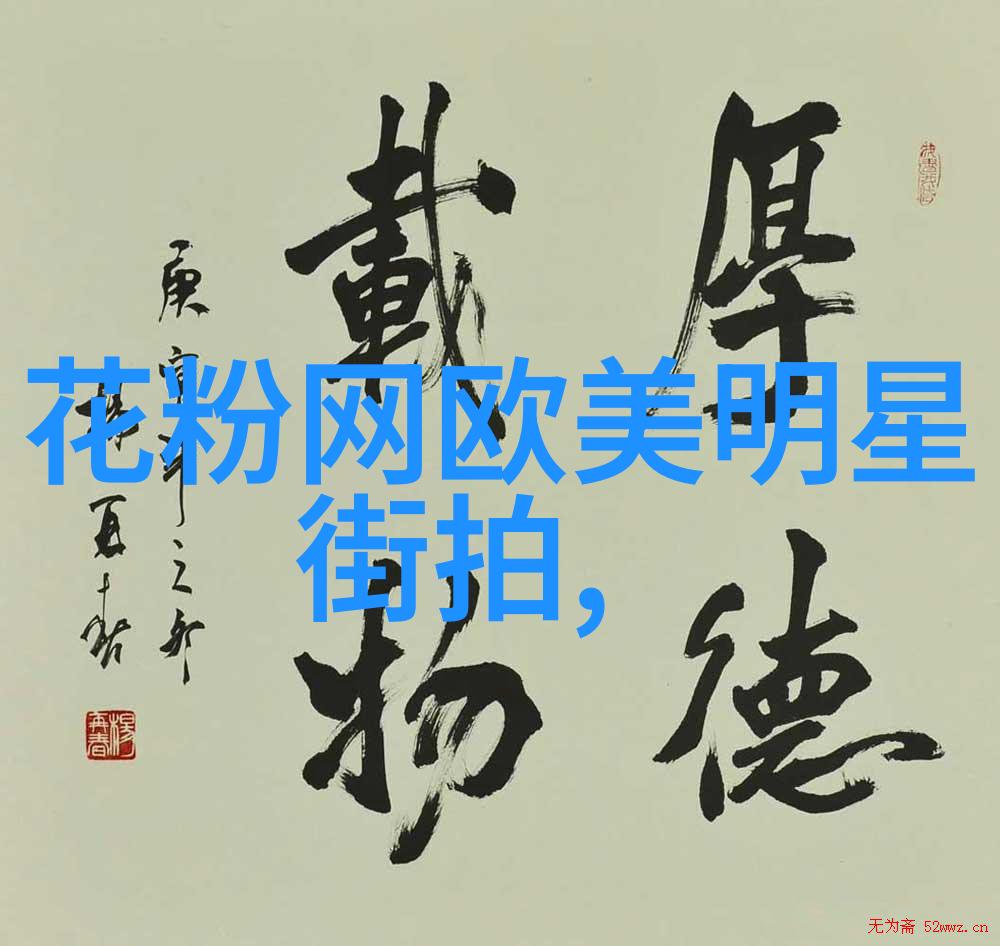 厚德
載物
庚寅年之
楊再春
楊再春
花粉网欧美明星
街拍,
无为斋 52wwz.cn